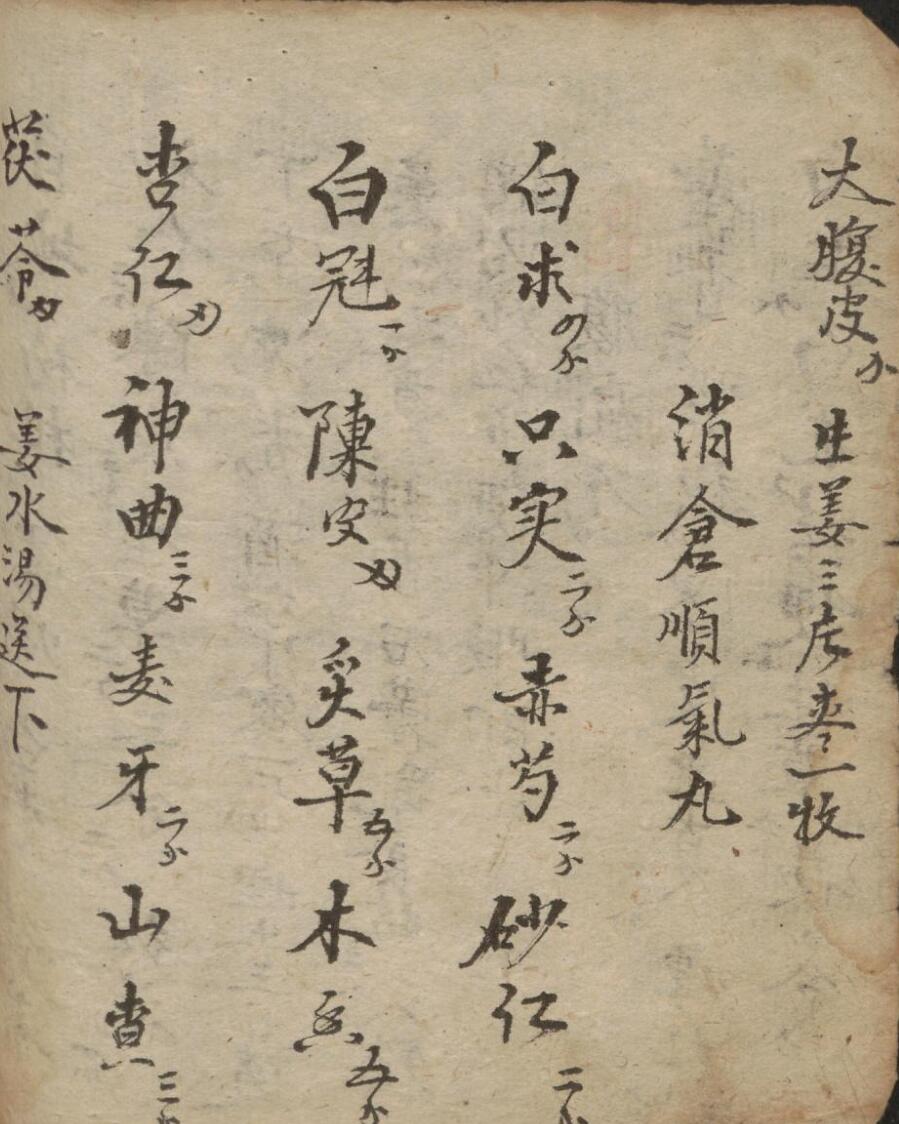 大腹皮 生姜三片枣一牧
消倉順氣丸
白求 只实二分 赤芍二分 砂仁二分
白冠 陳皮 炙草五分 木香五分
杏仁 神曲三分 麦牙二分 山查三分
茯苓 姜水湯送下